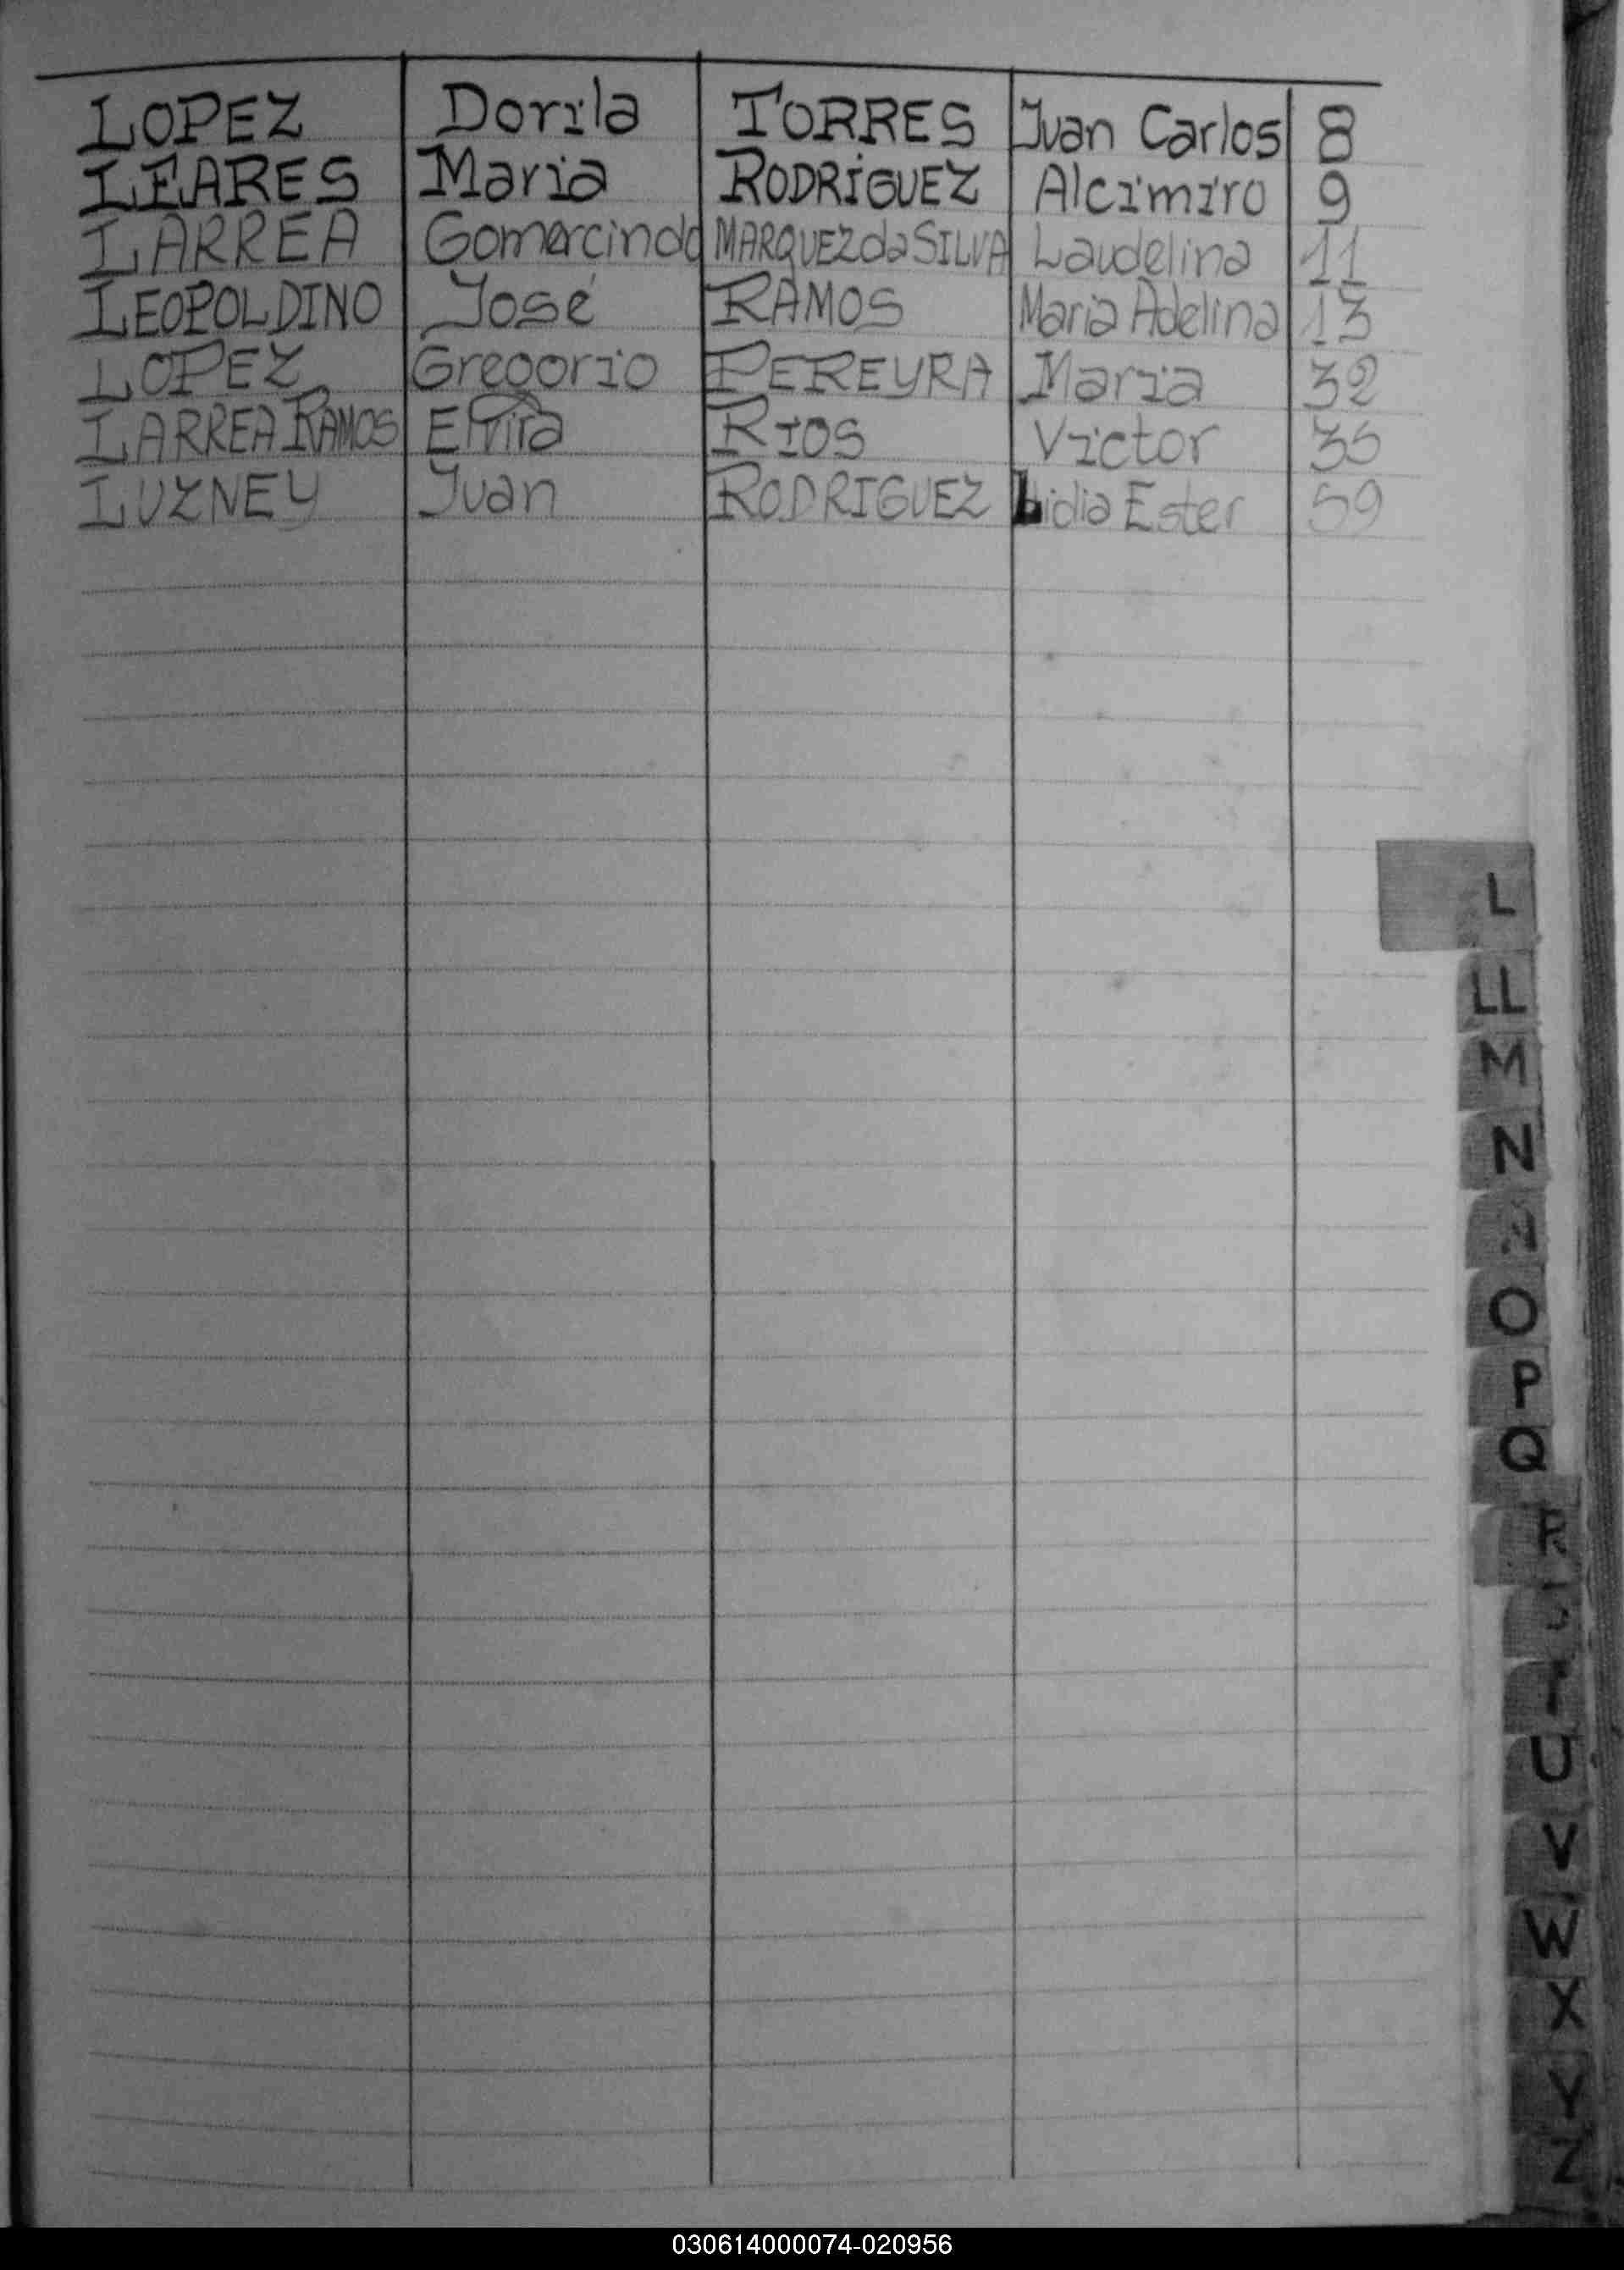 LOPEZ Dorila TORRES Juan Carlos 8
LEARES Maria RODRÍGUEZ Alcimiro 9
LARREA Gomercindo MARQUEZ da SILVA Laudelina 11
LEOPOLDINO José RAMOS Maria Adelina 13
LOPEZ Gregorio PEREYRA Maria 32
LARREA RAMOS RIOS Victor
LUZNEY Juan RODRIGUEZ Lidia Ester 59
L
LL
M
N
O
P
Q
R
T
U
V
W
X
Y
Z
030614000074-020956